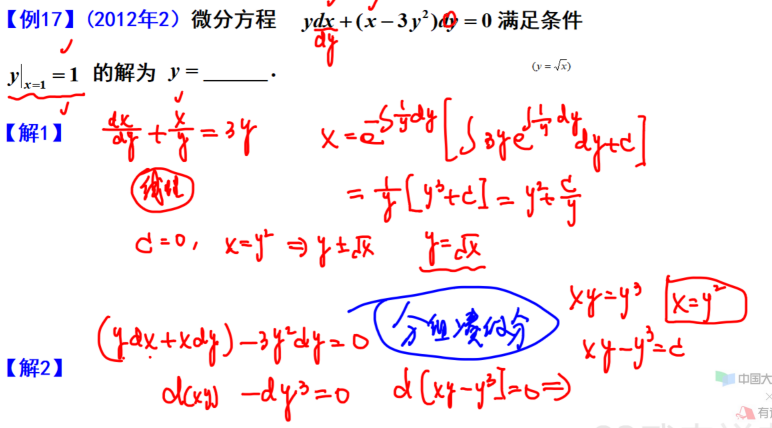 【例17】(2012年2) 微分方程 ydx+(x−3y²)dy=0 满足条件
dy
y|x=1 =1 的解为 y=______.
(y=√x)
【解1】 dx/dy + x/y = 3y x=e^{-∫1/y dy}[∫3y e^{∫1/y dy}dy+c]
线性 = 1/y [y³+c] = y²+c/y
c=0, x=y² ⇒ y±√x y=√x
xy=y³ x=y²
(ydx+xdy)−3y²dy=0 分组凑微分 xy−y³=c
【解2】 d(xy) −dy³=0 d[xy−y³]=0⇒
中国大